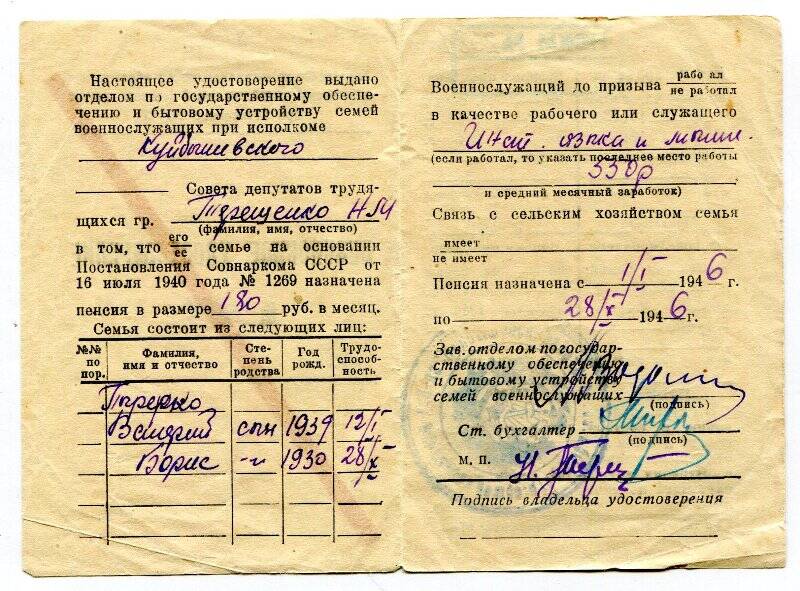 Настоящее удостоверение выдано
отделом по государственному обеспе-
чению и бытовому устройству семей
военнослужащих при исполкоме
Куйбышевского
Совета депутатов трудя-
щихся гр. Терещенко Н М
(фамилия, имя, отчество)
в том, что его/ее семье на основании
Постановления Совнаркома СССР от
16 июля 1940 года № 1269 назначена
пенсия в размере 180 руб. в месяц.
Семья состоит из следующих лиц:
№№ по пор. Фамилия, имя и отчество Сте-пень родства Год рожд. Трудо-способ-ность
Валерий сын 1939 12/I
Борис -"- 1930 28/XI
Военнослужащий до призыва работал/не работал
в качестве рабочего или служащего
Инст. языка и мышл.
(если работал, то указать последнее место работы
550р
и средний месячный заработок)
Связь с сельским хозяйством семья
имеет
не имеет
Пенсия назначена с 1/I 1946 г.
по 28/XI 1946г.
Зав. отделом по государ-
ственному обеспечению
и бытовому устройству
семей военнослужащих
(подпись)
Ст. бухгалтер
(подпись)
М. П.
Н. Терещ
Подпись владельца удостоверения